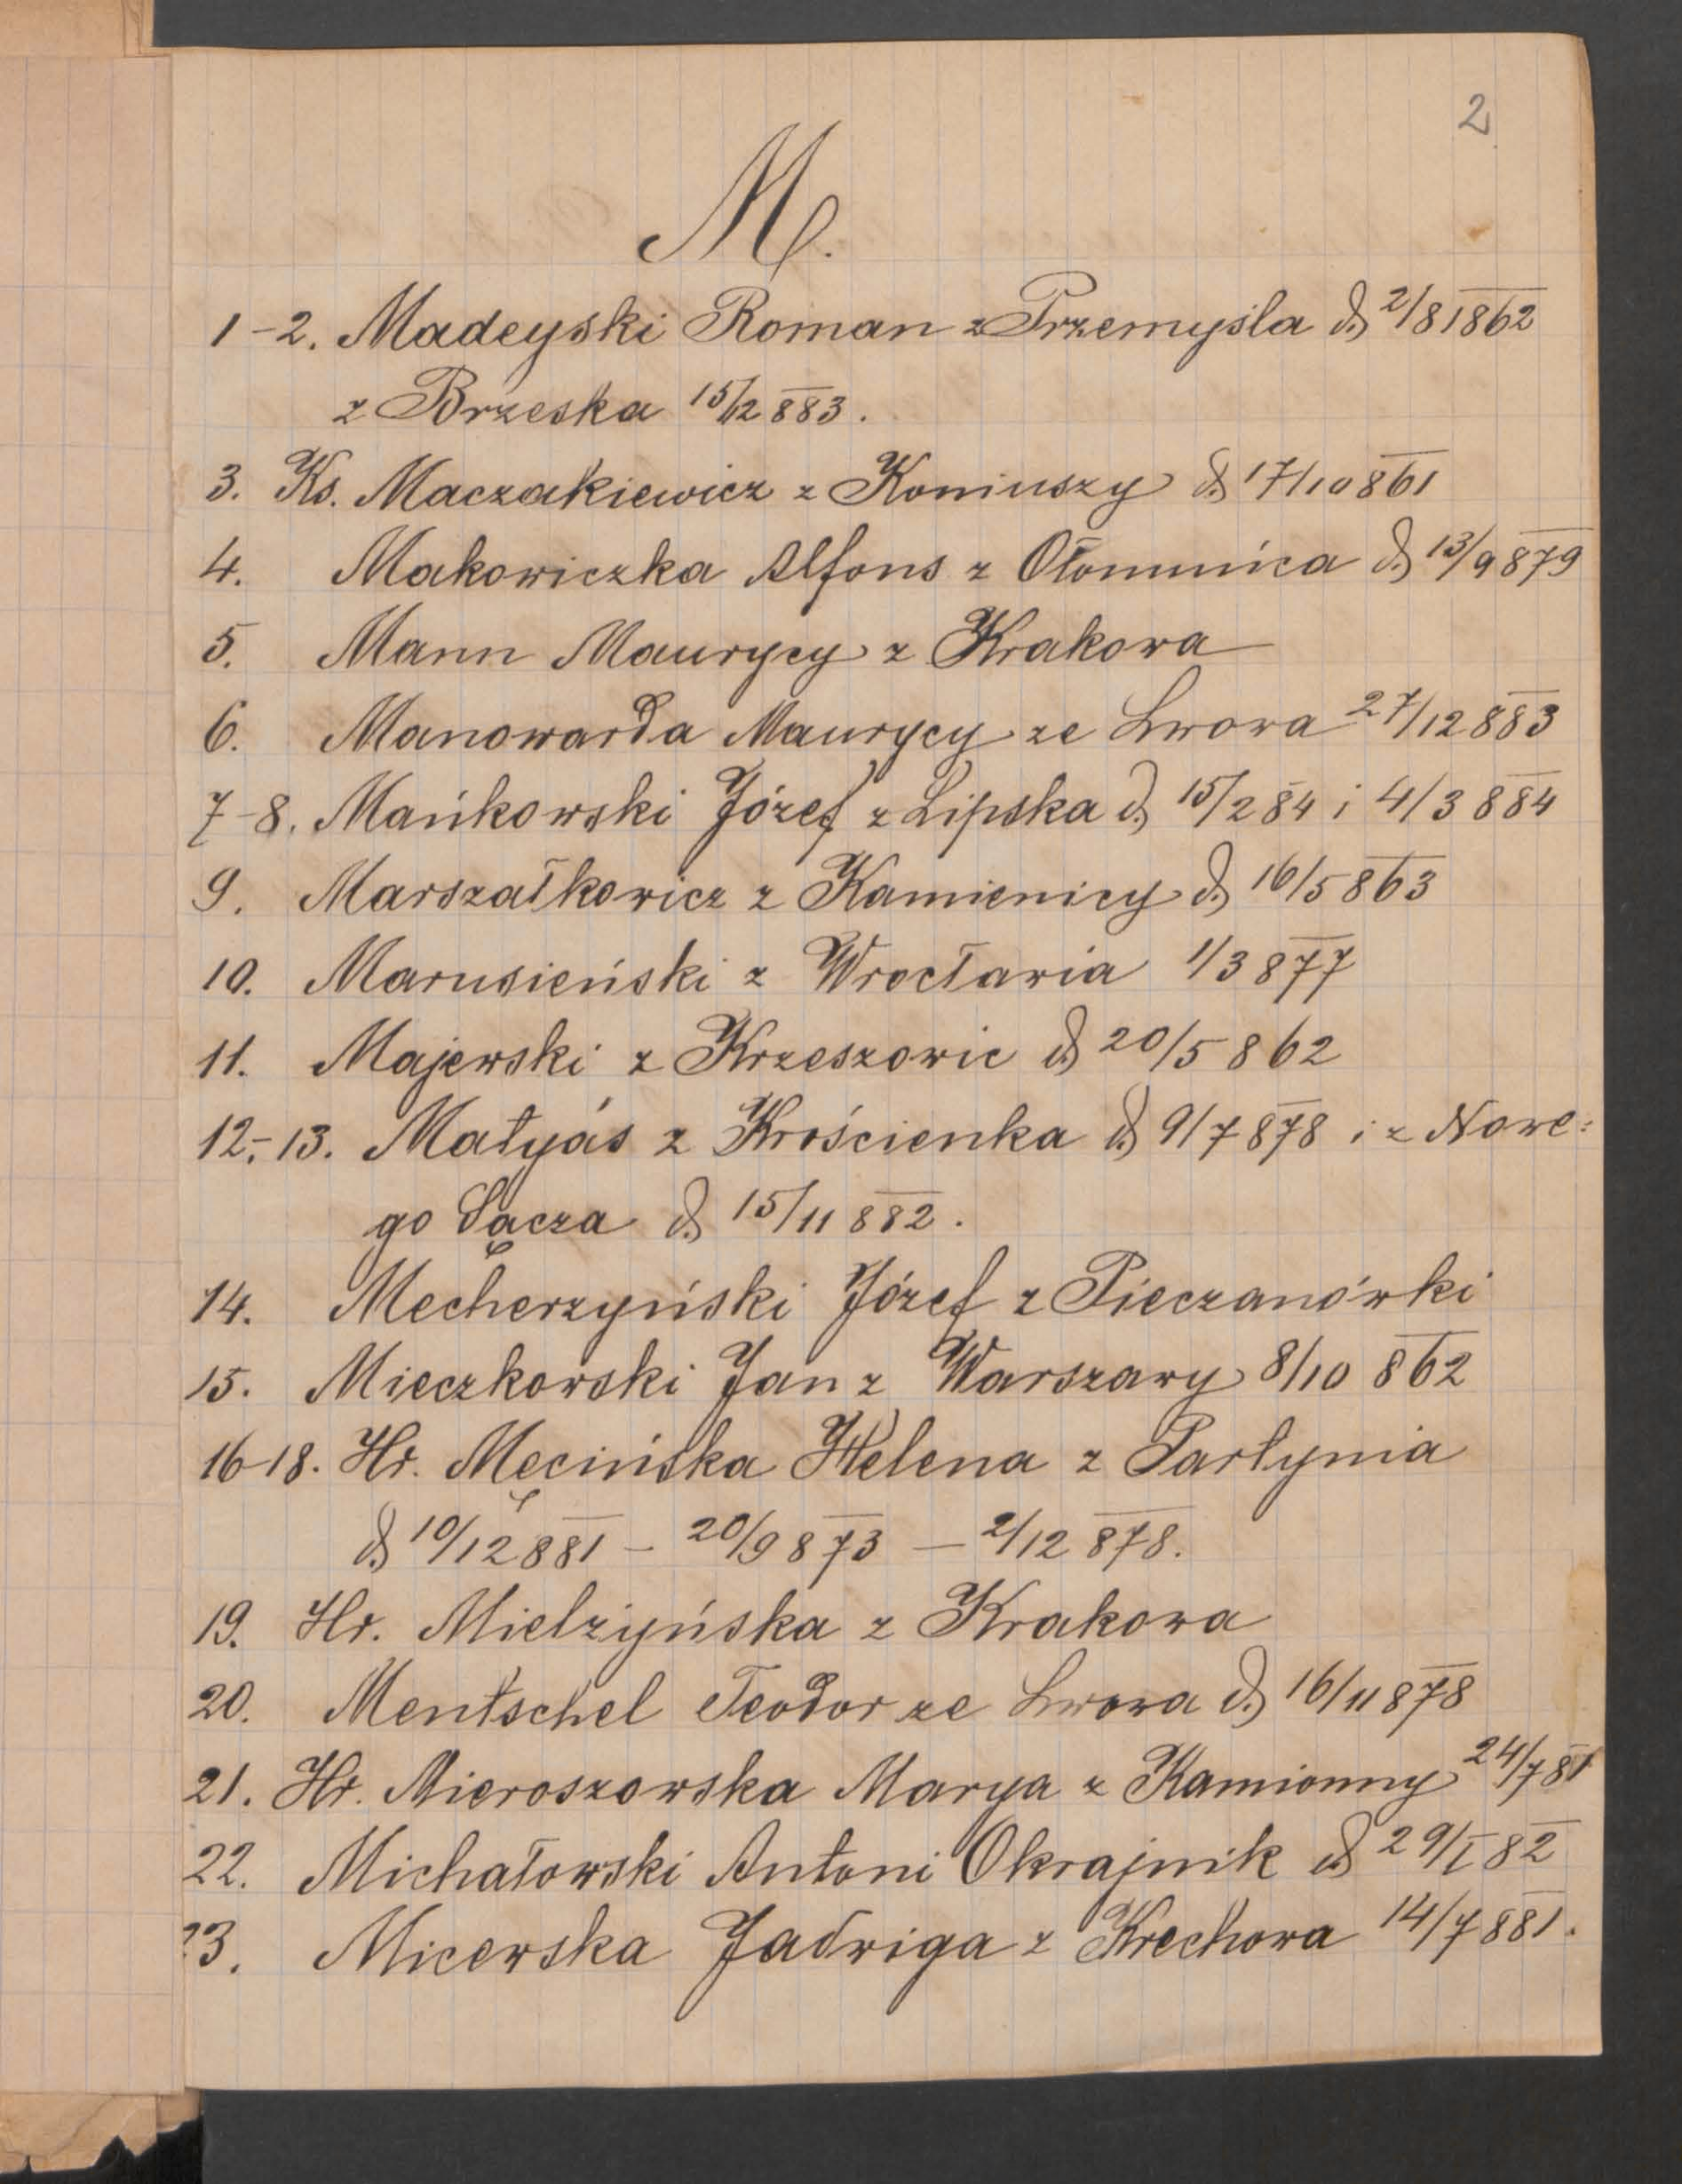 2
M.
1-2. Madeyski Roman z Przemyśla d. 2/8 1862
z Brzeska 15/12 883.
3. Ks. Maczakiewicz z Koniuszy d. 17/10 861
4. Makowiczka Alfons z Ołomuńca d. 13/9 879
5. Mann Maurycy z Krakowa
6. Manowarda Maurycy ze Lwowa 27/12 883
7-8. Mańkowski Józef z Lipska d. 15/2 84 i 4/3 884
9. Marszałkowicz z Kamienicy d. 16/5 863
10. Marusieński z Wrocławia 1/3 877
11. Majewski z Krzeszowic d. 20/5 862
12.-13. Matyás z Krościenka d. 9/7 878 i z Nowe=
go Sącza d. 15/11 882.
14. Mecherzyński Józef z Pieczanówki
15. Mieczkowski Jan z Warszawy 8/10 862
16-18. Hr. Męcińska Helena z Partynia
d. 10/12 881 - 20/9 873 - 2/12 878.
19. Hr. Mielżyńska z Krakowa
20. Mentschel Teodor ze Lwowa d. 16/11 878
21. Hr. Mieroszowska Marya z Kamionny 24/7 81
22. Michałowski Antoni Okrajnik d. 29/I 82
23. Micewska Jadwiga z Krechowa 14/7 881.